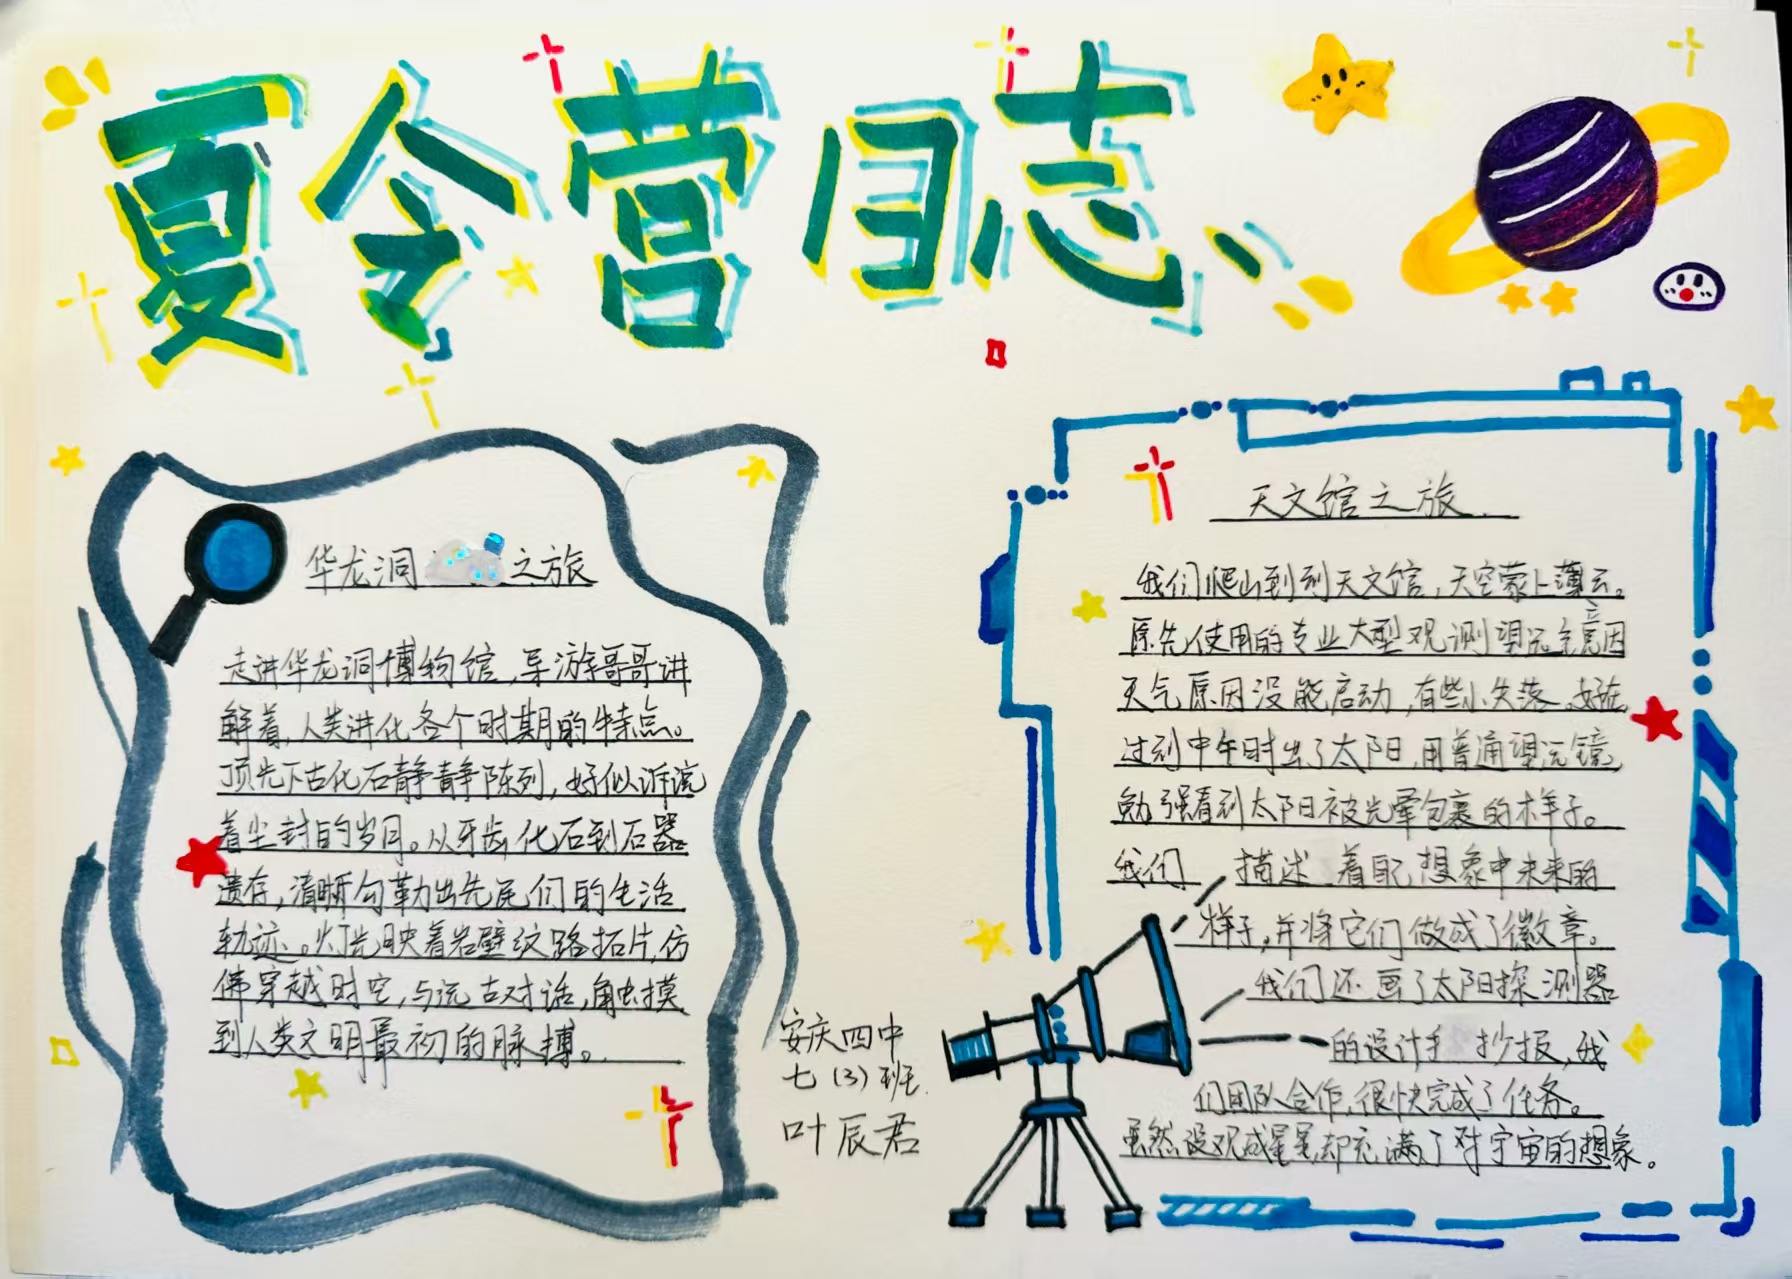 夏令营日志
华龙洞 之旅
走进华龙洞博物馆,导游哥哥讲
解着,人类进化各个时期的特点。
顶光下古化石静静陈列,好似诉说
着尘封的岁月。从牙齿化石到石器
遗存,清晰勾勒出先民们的生活
轨迹。灯光映着岩壁纹路拓片,仿
佛穿越时空,与远古对话,触摸
到人类文明最初的脉搏。
安庆四中
七(3)班
叶辰君
天文馆之旅
我们爬山到到天文馆,天空蒙上薄云。
原先使用的专业大型观测望远镜因
天气原因没能启动,有些小失落。好在
过到中午时出了太阳,用普通望远镜
勉强看到太阳被光晕包裹的样子。
我们 描述着自己想象中未来的
样子,并将它们做成了徽章。
我们还画了太阳探测器
的设计手抄报,我
们团队合作,很快完成了任务。
虽然没观成星星,却充满了对宇宙的想象。